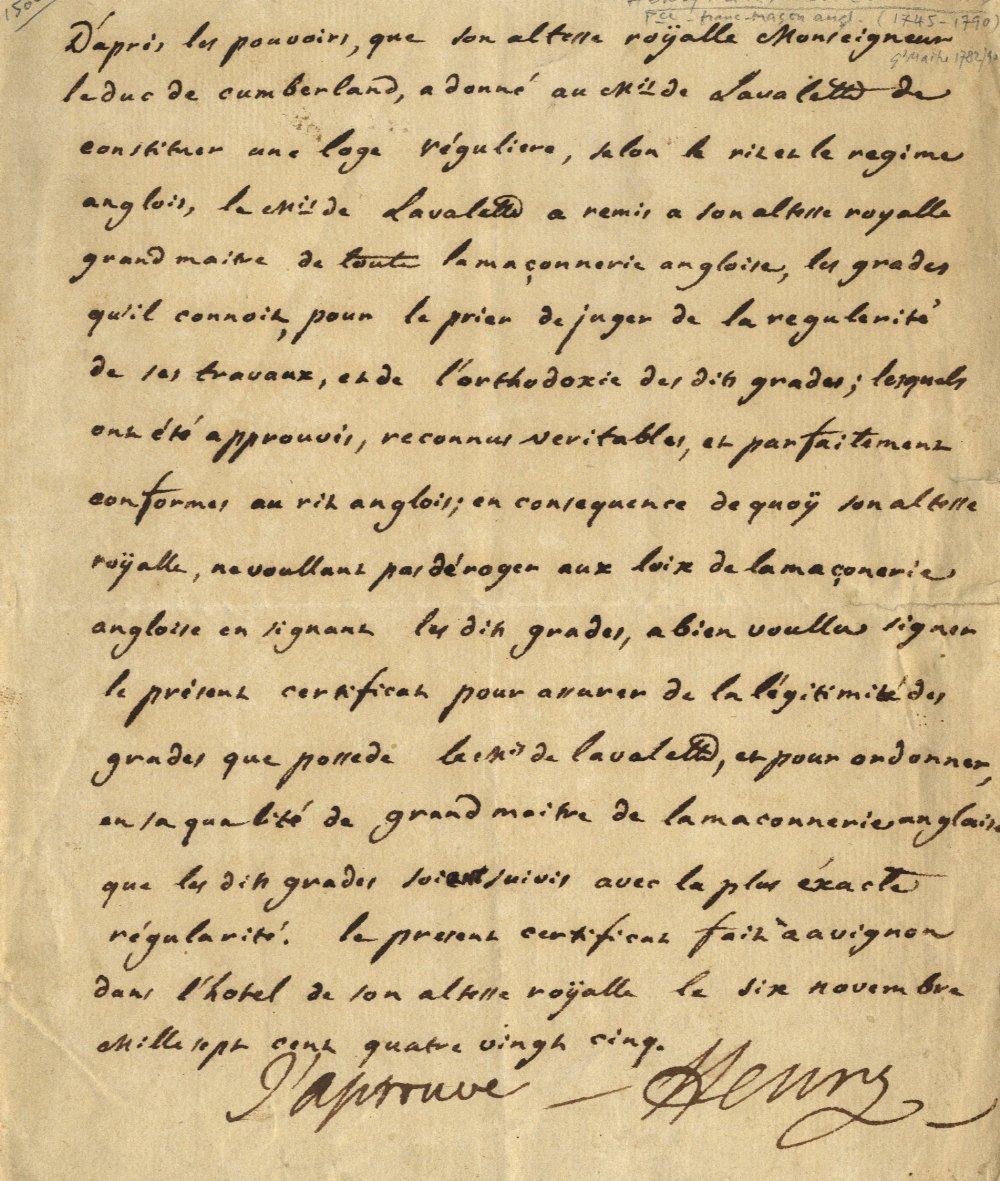 1500
Pce - franc-maçon angl. (1745-1790)
Gd Maitre 1782/90
D'apris les pouvoirs, que son altesse roÿalle Monseigneur
le duc de cumberland, a donné au Mis de Lavalette de
constituer une loge réguliere, selon le rit et le regime
anglois, le Mis de Lavalette a remis a son altesse royalle
grand maitre de toute la maçonnerie angloise, les grades
qu'il connoit, pour le prier de juger de la regulerité
de ses travaux, et de l'orthodoxie des dits grades; lesquels
ont été approuvis, reconnus veritables, et parfaitement
conformes au rit anglois; en consequence de quoÿ son altesse
roÿalle, ne voullant pas déroger aux loix de la maçonerie
angloise en signant les dits grades, a bien voullu signer
le présent certificat pour assurer de la légitimité des
grades que possede le Mis de lavalette, et pour ordonner,
en sa qualité de grand maitre de la maconnerie anglaise
que les dits grades soient suivis avec la plus éxacte
régularité. le present certificat fait a avignon
dans l'hotel de son altesse roÿalle le six novembre
Mille sept cent quatre vingt cinq.
J'aprouve — Henry